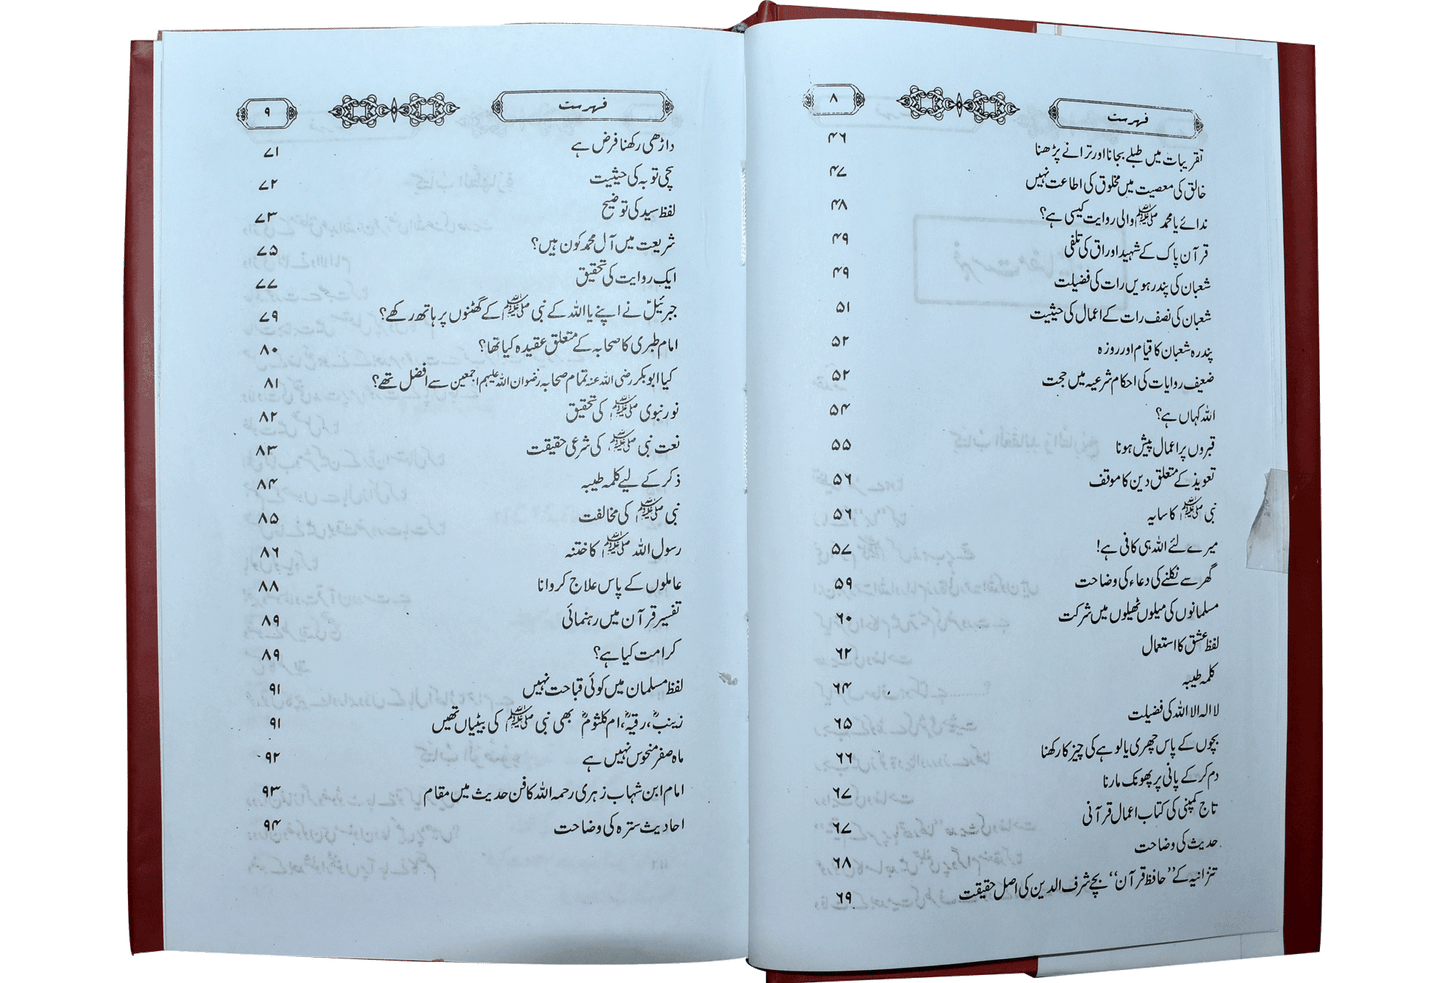 فہرست ۸
تقریبات میں طبلے بجانا اور ترانے پڑھنا ۴۶
خالق کی معصیت میں مخلوق کی اطاعت نہیں ۴۷
ندائے یا محمد ﷺ والی روایت کیسی ہے؟ ۴۸
قرآن پاک کے شہید اوراق کی تلفی ۴۹
شعبان کی پندرھویں رات کی فضیلت ۴۹
شعبان کی نصف رات کے اعمال کی حیثیت ۵۱
پندرہ شعبان کا قیام اور روزہ ۵۲
ضعیف روایات کی احکام شرعیہ میں حجت ۵۲
اللہ کہاں ہے؟ ۵۴
قبروں پر اعمال پیش ہونا ۵۵
تعویذ کے متعلق دین کا موقف ۵۶
نبی ﷺ کا سایہ ۵۶
میرے لئے اللہ ہی کافی ہے! ۵۷
گھر سے نکلنے کی دعاء کی وضاحت ۵۹
مسلمانوں کی میلوں ٹھیلوں میں شرکت ۶۰
لفظ عشق کا استعمال ۶۲
کلمہ طیبہ ۶۴
لا الہ الا اللہ کی فضیلت ۶۵
بچوں کے پاس چھری یا لوہے کی چیز کا رکھنا ۶۶
دم کر کے پانی پر پھونک مارنا ۶۷
تاج کمپنی کی کتاب اعمال قرآنی ۶۷
حدیث کی وضاحت ۶۸
تنزانیہ کے "حافظ قرآن" بچے شرف الدین کی اصل حقیقت ۶۹
فہرست ۹
داڑھی رکھنا فرض ہے ۷۱
سچی توبہ کی حیثیت ۷۲
لفظ سید کی توضیح ۷۳
شریعت میں آل محمد کون ہیں؟ ۷۵
ایک روایت کی تحقیق ۷۷
جبرئیلؑ نے اپنے یا اللہ کے نبی ﷺ کے گھٹنوں پر ہاتھ رکھے؟ ۷۹
امام طبری کا صحابہ کے متعلق عقیدہ کیا تھا؟ ۸۰
کیا ابوبکر رضی اللہ عنہ تمام صحابہ رضوان اللہ علیہم اجمعین سے افضل تھے؟ ۸۱
نور نبوی ﷺ کی تحقیق ۸۲
نعت نبی ﷺ کی شرعی حقیقت ۸۳
ذکر کے لیے کلمہ طیبہ ۸۴
نبی ﷺ کی مخالفت ۸۵
رسول اللہ ﷺ کا ختنہ ۸۶
عاملوں کے پاس علاج کروانا ۸۸
تفسیر قرآن میں رہنمائی ۸۹
کرامت کیا ہے؟ ۸۹
لفظ مسلمان میں کوئی قباحت نہیں ۹۱
زینبؓ، رقیہؓ، ام کلثومؓ بھی نبی ﷺ کی بیٹیاں تھیں ۹۱
ماہ صفر منحوس نہیں ہے ۹۲
امام ابن شہاب زہری رحمہ اللہ کا فن حدیث میں مقام ۹۳
احادیث سترہ کی وضاحت ۹۴